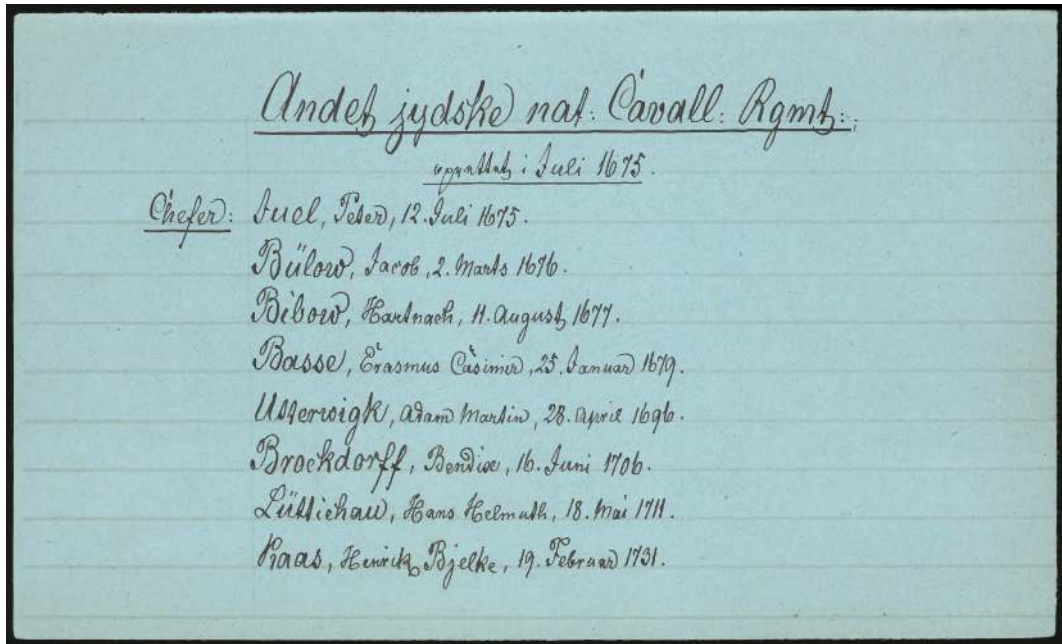 Andet jydske nat: Cavall: Rgmt:
oprettet i Juli 1675.
Chefer: Juel, Peter, 12. Juli 1675.
Bülow, Jacob, 2. Marts 1676.
Bibow, Hartnach, 11. August 1677.
Basse, Erasmus Casimir, 25. Januar 1679.
Usserwigk, Adam Martin, 28. April 1696.
Brockdorff, Bendix, 16. Juni 1706.
Lüttichau, Hans Helmuth, 18. Mai 1711.
Kaas, Henrick Bjelke, 19. Februar 1731.